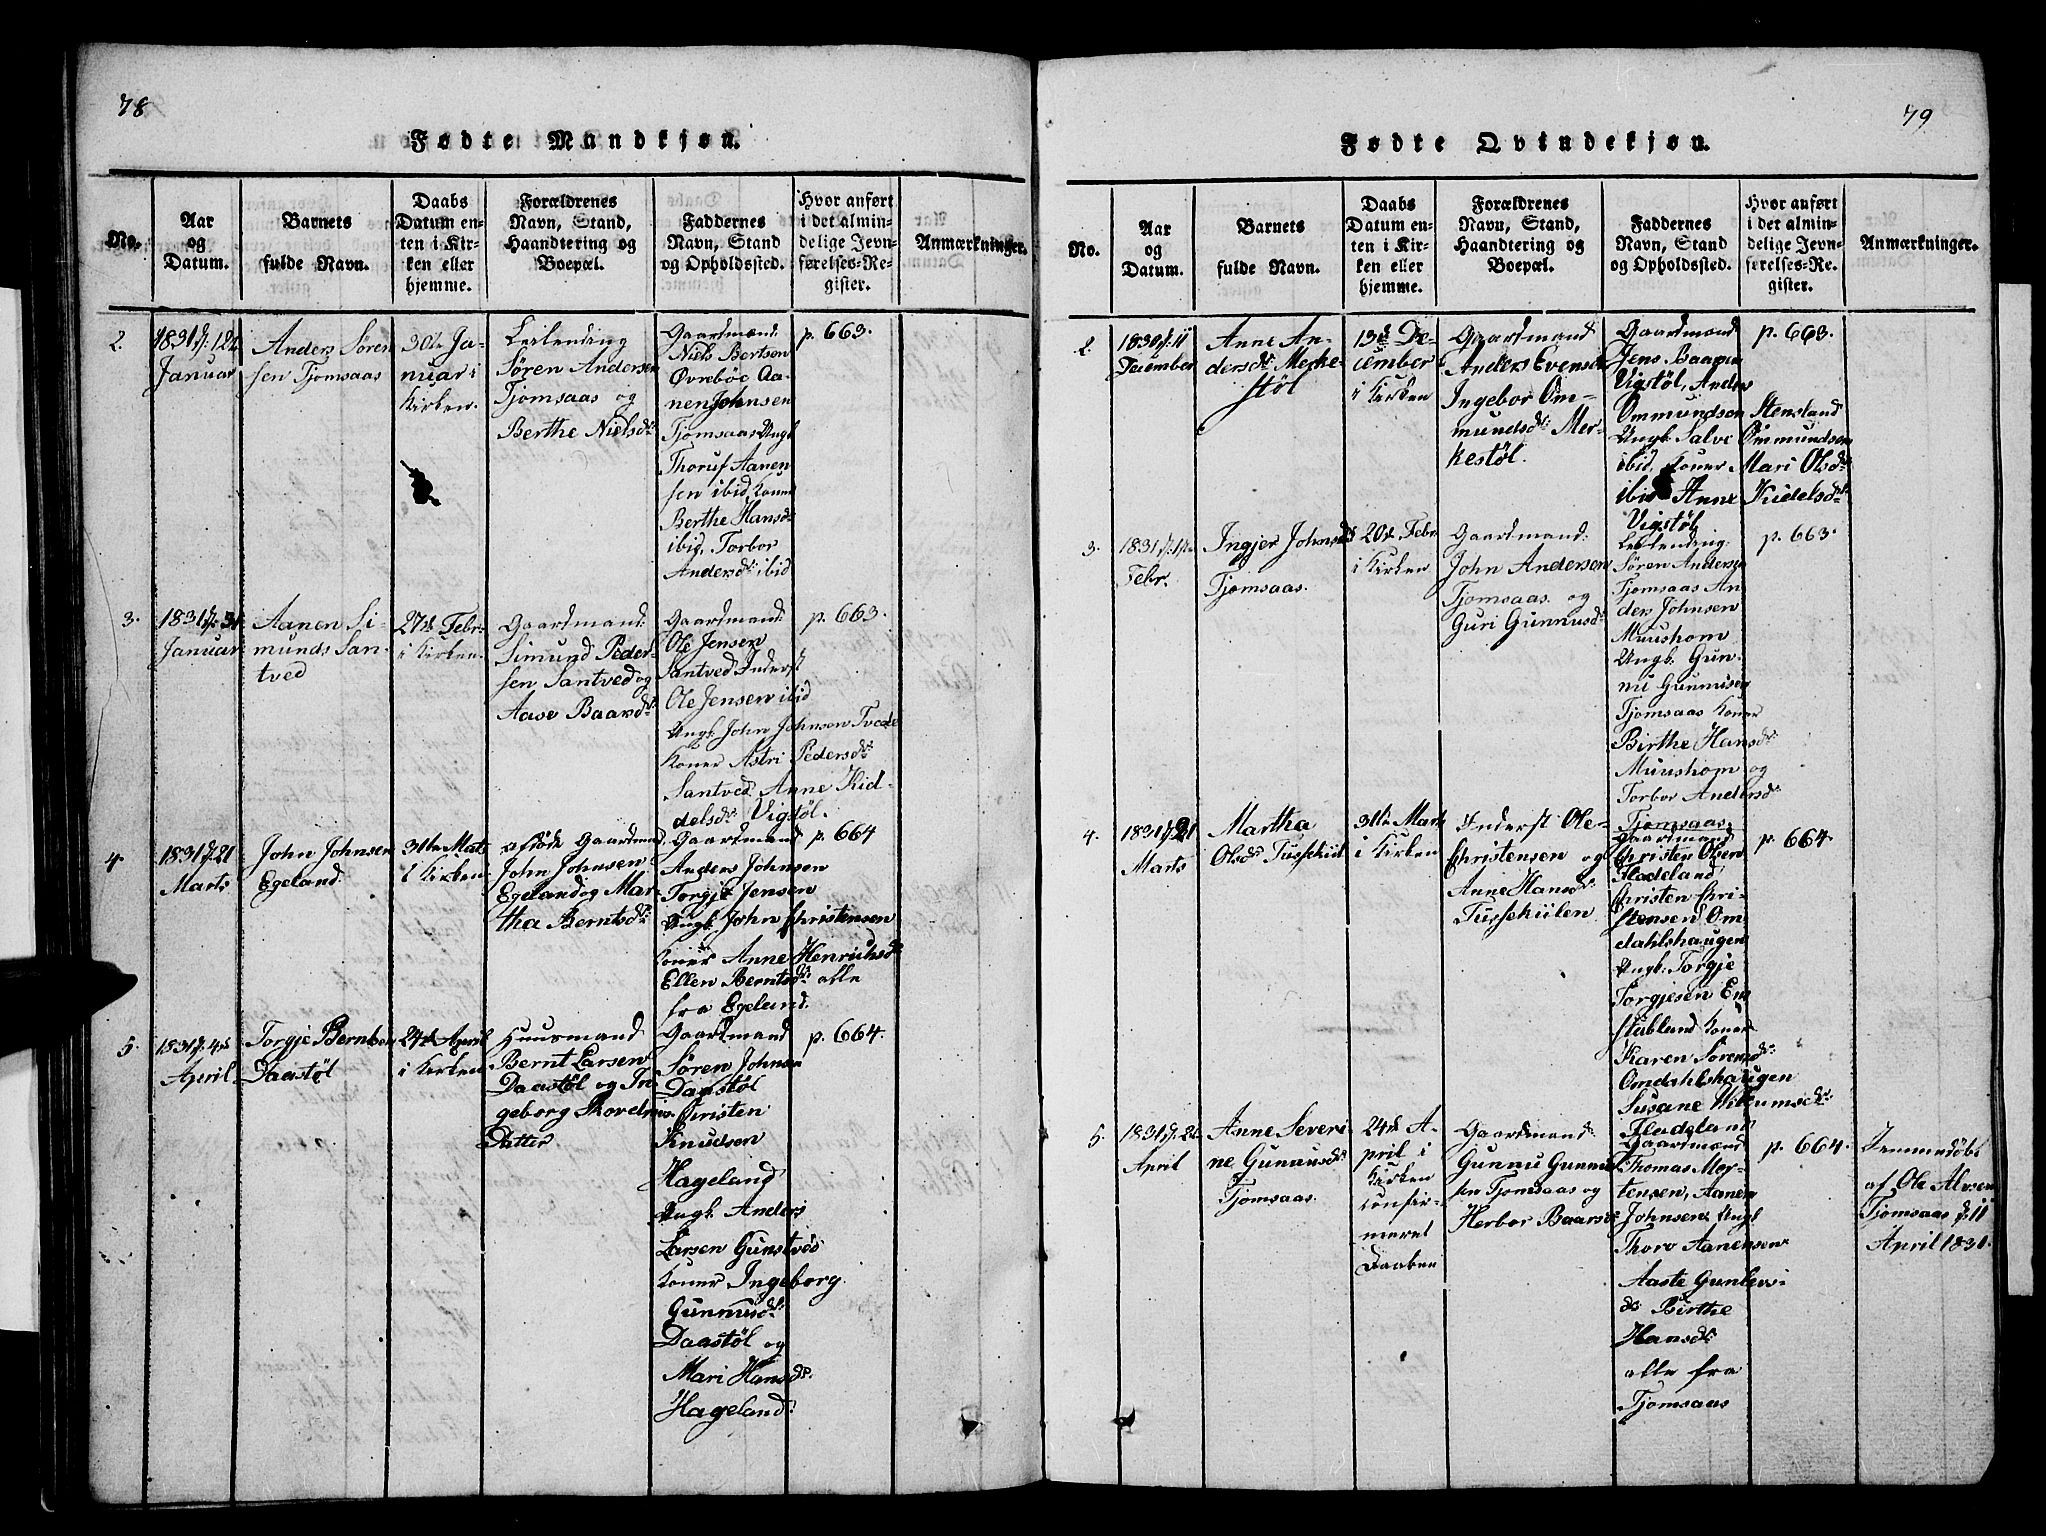 78
Fødte Mandkjøn.
No.
Aar
og
Datum.
Barnets
fulde Navn.
Daabs
Datum en-
ten i Kir-
ken eller
hjemme.
Forældrenes
Navn, Stand,
Haandtering og
Boepæl.
Faddernes
Navn, Stand
og Opholdssted.
Hvor anført
i det almin-
delige Jevn-
førelses-Re-
gister.
Anmærkninger.
2.
1831 d: 12te
Januar
Anders Søren
sen Tjomsaas
30te Ja-
nuar i
Kirken.
Leilending
Søren Andersen
Tjomsaas og
Berthe Nielsdr
Gaardmænd:
Niels Bertsen
Øvrebøe Aa-
nen Johnsen
Tjomsaas Ungk
Thoruf Aanen
sen ibid. Koner
Berthe Hansdr
ibid, Torbor
Andersdr ibid
p. 663.
3.
1831 d: 31
Januar
Aanen Si-
munds San-
tved
27de Febr.
i Kirken
Gaardmand:
Simund Peder-
sen Santved og
Aase Baarsdr
Gaardmand:
Ole Jensen
Santved Inderst
Ole Jensen ibid
Ungk. John Johnsen Tvede
Koner Astri Pedersdr
Santved. Anne Kid-
delsdr Vigstøl.
p. 663.
4.
1831 d: 21
Marts
John Johnsen
Egeland.
31te Mats
i Kirken
afdøde Gaardmand
John Johnsen
Egeland og Mar-
tha Berntsdr
Gaardmænd
Anders Johnsen
Torgje Jensen
Ungk. John Christensen
Koner Anne Henrichsdr
Ellen Berntsdr alle
fra Egeland.
p. 664
5.
1831 d: 4de
April
Torgje Berntsen
Daastøl
24de April
i Kirken
Huusmand
Bernt Larsen
Daastøl og In
geborg
Datter
Gaardmand
Søren Johnsen
Daastøl
Christen
Knudsen
Hageland
Ungk. Anders
Larsen Gunstved
Koner Ingeborg
Gunnusdr
Daastøl og
Mari Hansdr.
Hageland.
p. 664.
79
Fødte Qvindekjøn.
No.
Aar
og
Datum.
Barnets
fulde Navn.
Daabs
Datum en-
ten i Kir-
ken eller
hjemme.
Forældrenes
Navn, Stand,
Haandtering og
Boepæl.
Faddernes
Navn, Stand
og Opholdssted.
Hvor anført
i det almin-
delige Jevn-
førelses-Re-
gister.
Anmærkninger.
2.
1830 d: 11
Anne An-
dersdr Merke-
støl
13de De-
cember
i Kirken
Gaardmand
Anders Evensen
Ingebor Om-
mundsdr Mer-
kestøl.
Gaardmænd
Jens Baarsen
Vigstøl, Anders
Ommundsen Stensland
Ungk. Salve Ommundsen
ibid, Koner Mari Olsdr
ibid Anne Kidelsdr
Vigstøl
p. 663.
3.
1831
Febr.
Ingjer Johnsd
Tjomsaas.
20de Febr
i Kirken
Gaardmand:
John Andersen
Tjomsaas og
Guri Gunnusdr
Leilending:
Søren Andersen
Tjomsaas An
ders Johnsen
Muushom
Ungk. Gun-
nu Gunnusen
Tjomsaas Koner
Birthe Hansdr
Muushom og
Torbor Andersdr
Tjomsaas.
p. 663.
4.
1831 d: 21
Marts
Martha
Olsdr Tussekiil
31te Marts
i Kirken
Inderst Ole
Christensen og
Anne Hansdr
Tussekiilen
Gaardmænd
Christen Olsen
Fladeland
Christen Chri-
stensen Om
dahlshaugen
Ungk. Torgje
Torgjesen Em
stubland Koner
Karen Sørensdr
Omdahlshaugen
Susane Willumsdr
Fladeland
p. 664.
5.
1831
April
Anne Severi
ne Gunnusdr
Tjomsaas.
24de A-
pril i
Kirken
confir-
meret
Daaben
Gaardmand
Gunnu Gunnu
sen Tjomsaas og
Herbor Baarsdr
Gaardmænd
Thomas Mor-
tensen, Aanen
Johnsen Ungk
Thorv Aanensen
Aaste Gunlevs-
dr Birthe
Hansdr
alle fra
Tjomsaas
p. 664.
Jemmedøbt
af Ole Alvsen
Tjomsaas d: 11
April 1831.